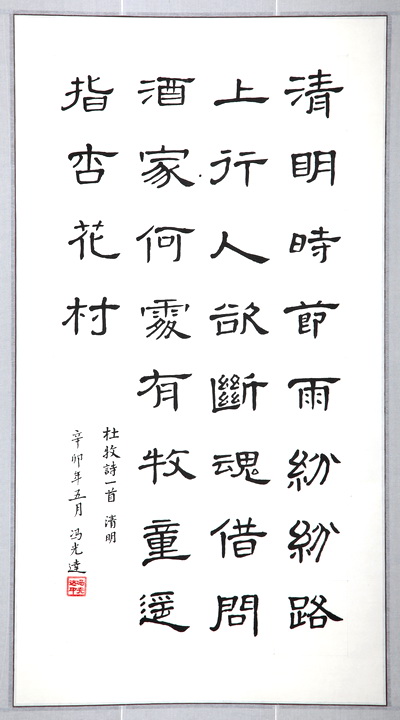 清明時節雨紛紛路
上行人欲斷魂借問
酒家何處有牧童遙
指杏花村
杜牧詩一首 清明
辛卯年五月 冯光達